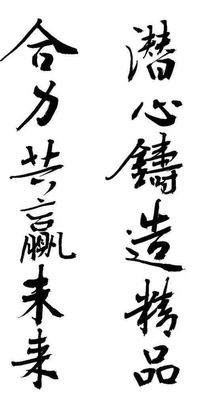 潜心鑄造精品
合力共赢未来